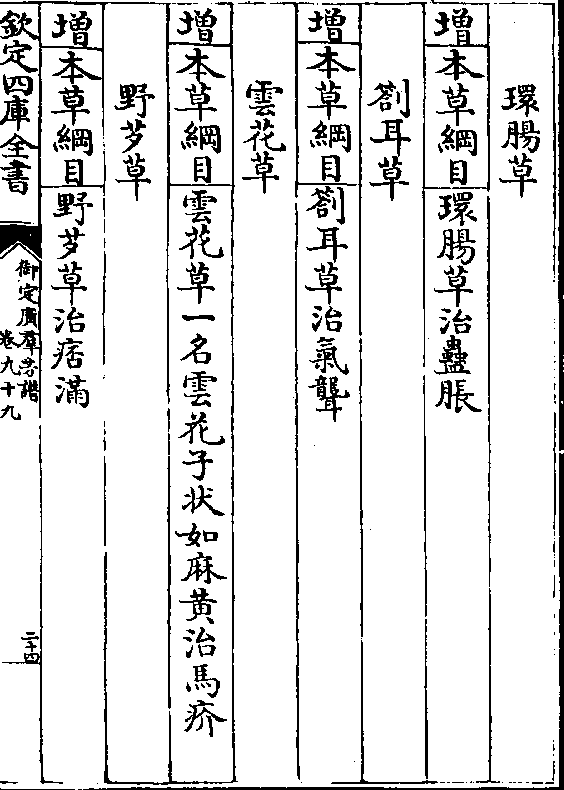 環腸草
增本草綱目環腸草治蠱脹
劄耳草
增本草綱目劄耳草治氣聾
雲花草
增本草綱目雲花草一名雲花子状如麻黄治馬疥
野芗草
增本草綱目野芗草治痞滿
欽定四庫全書
御定廣羣芳譜
卷九十九
二十四